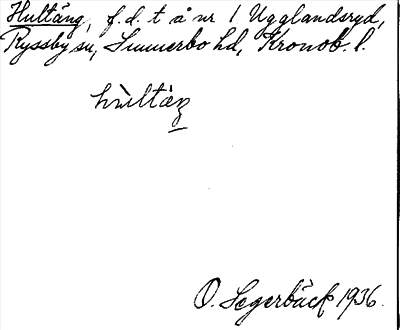 Hultäng, f.d. t å nr 1 Ugglandsryd,
Ryssby sn, Sunnerbo hd, Kronob. l.
hùltäŋ
O. Segerbäck 1936.